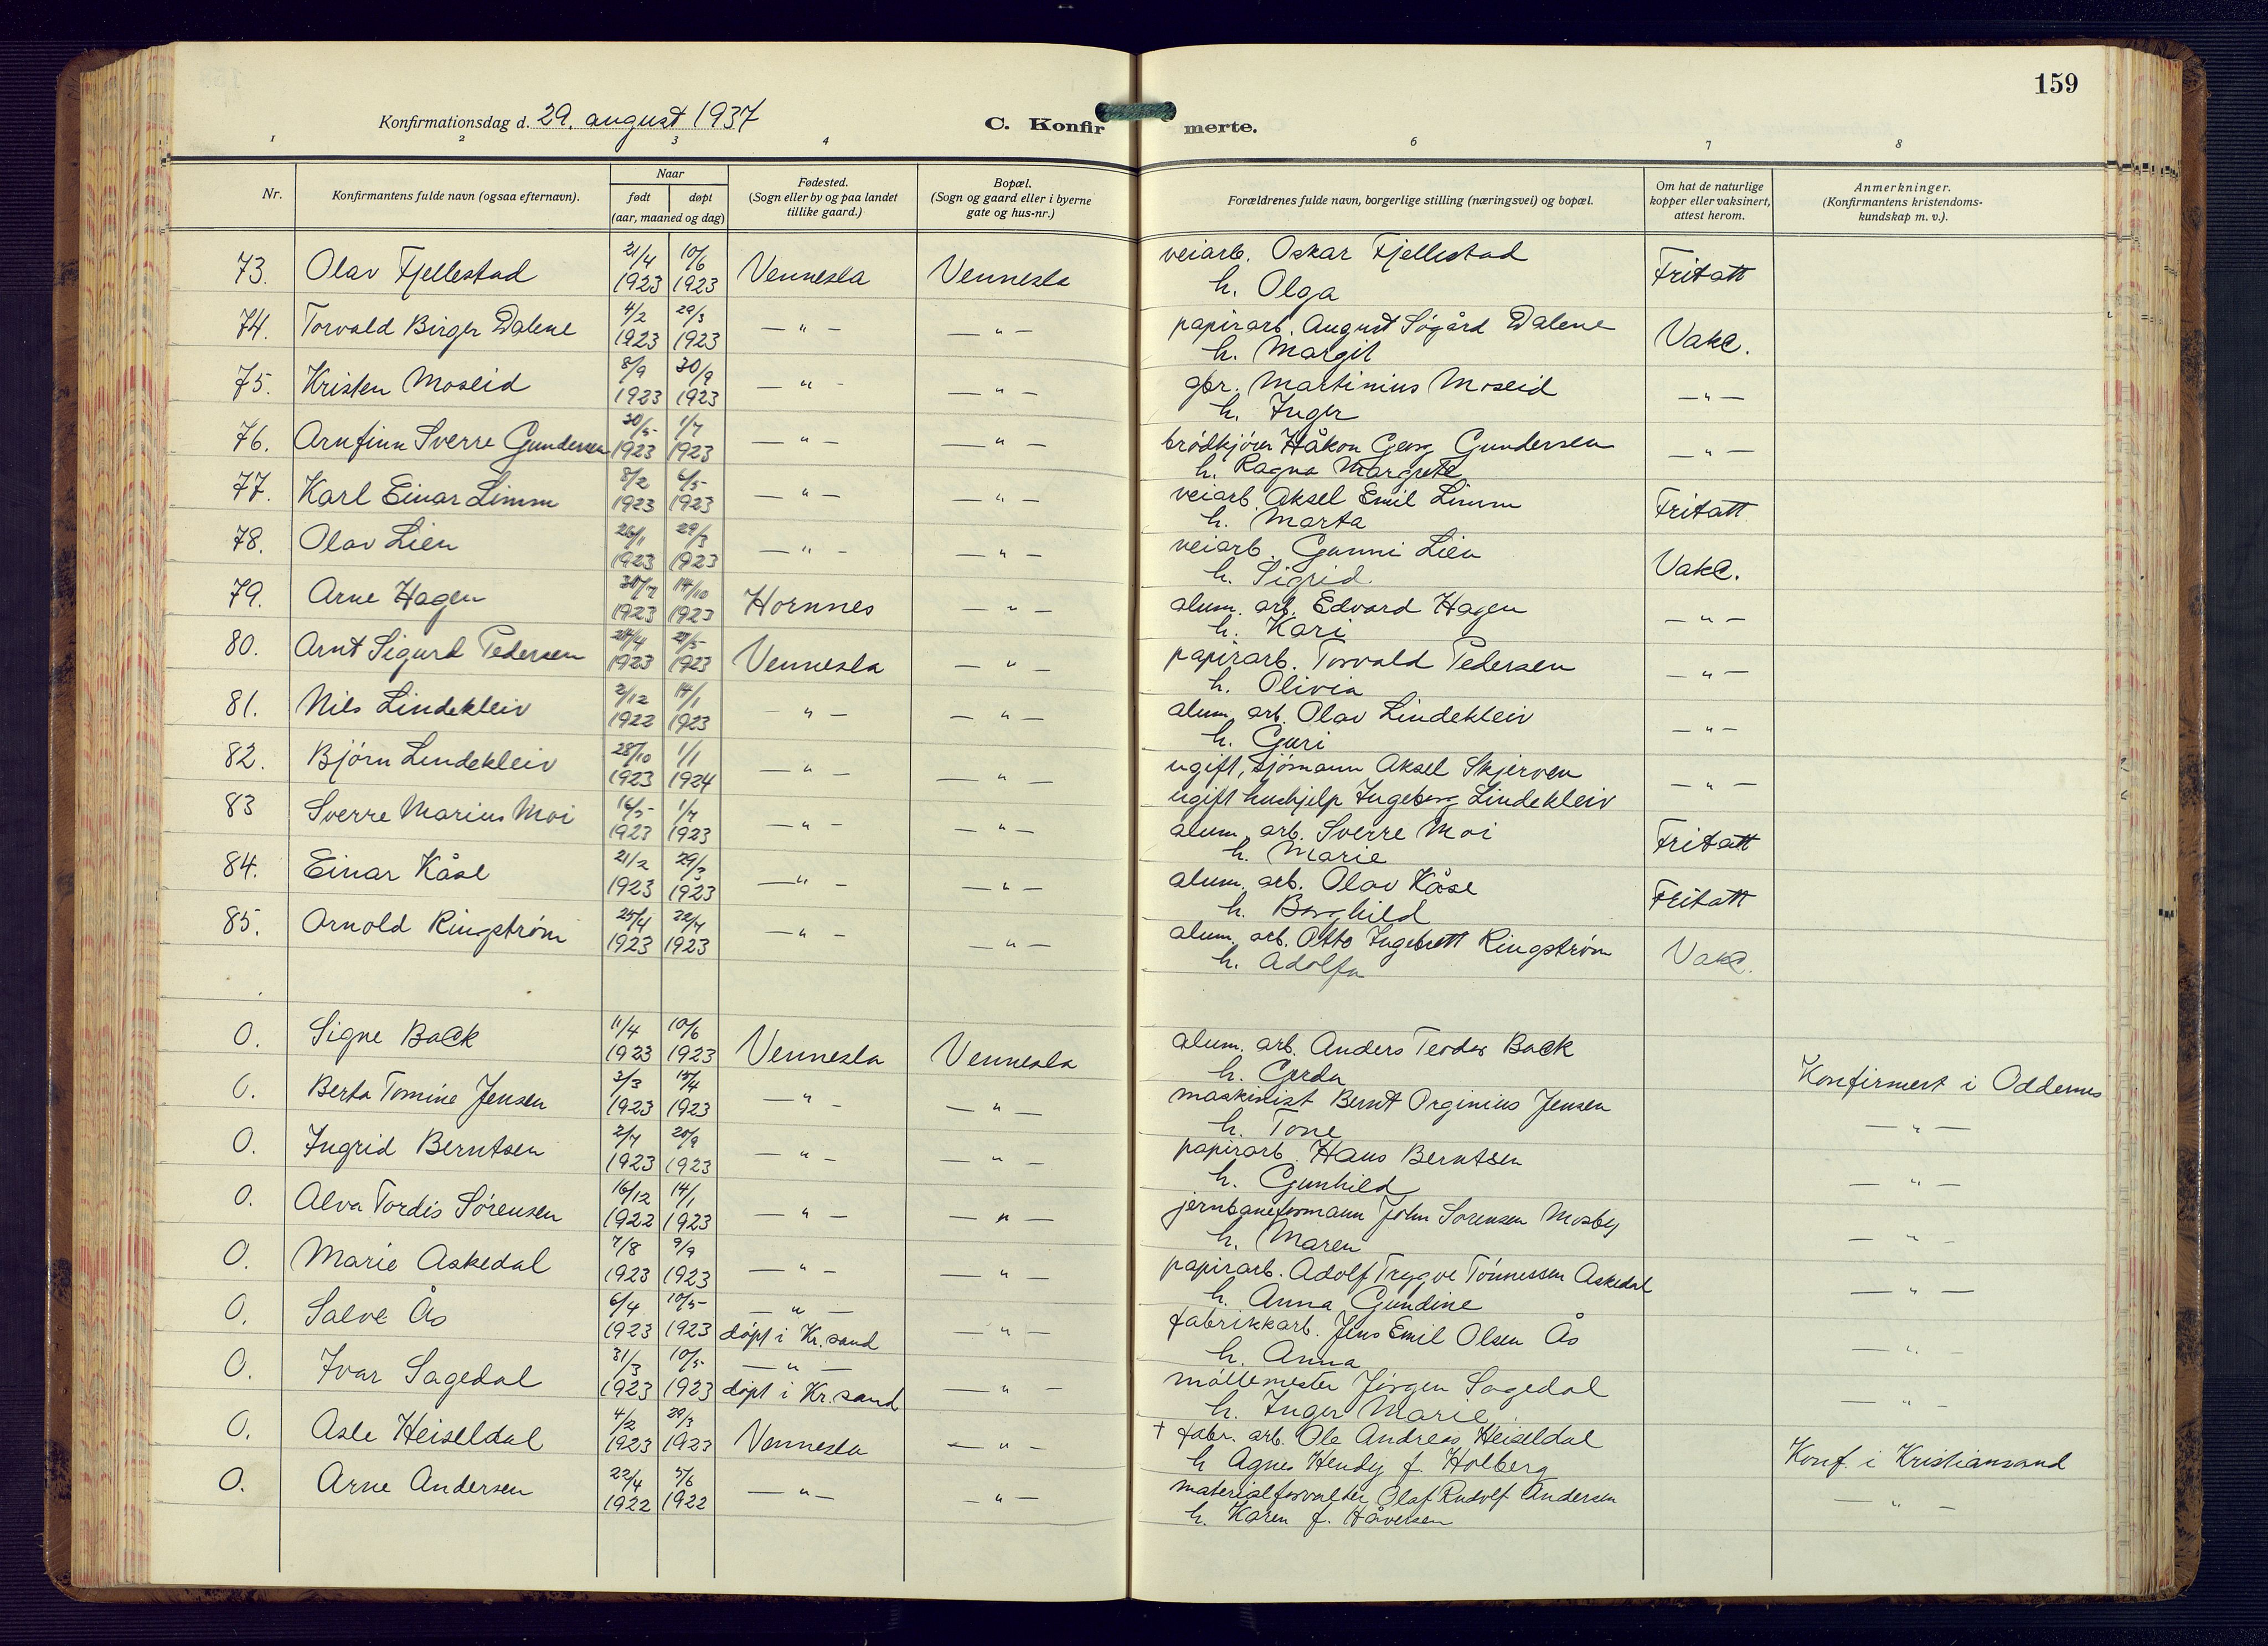 159
Konfirmationsdag d. 29. august 1937
C. Konfirmerte.
1 2 3 4 6 7 8
Nr. Konfirmantens fulde navn (ogsaa efternavn). Naar født døpt (aar, maaned og dag) Fødested. (Sogn eller by og paa landet tillike gaard.) Bopæl. (Sogn og gaard eller i byerne gate og hus-nr.) Forældrenes fulde navn, borgerlige stilling (næringsvei) og bopæl. Om hat de naturlige kopper eller vaksinert, attest herom. Anmerkninger. (Konfirmantens kristendoms-kundskap m. v.).
73. Olav Fjellestad 21/4 1923 10/6 1923 Vennesla Vennesla veiarb. Oskar Fjellestad Fritatt
h. Olga
74. Torvald Birger Dalene 4/2 1923 29/3 1923 — " — — " — papirarb. August Søgård Dalene Vakc.
h. Margit
75. Kristen Moseid 8/9 1923 30/9 1923 — " — — " — gbr. Martinius Moseid — " —
h. Inger
76. Arnfinn Sverre Gundersen 30/5 1923 1/7 1923 — " — — " — brödkjörer Håkon Georg Gundersen — " —
h. Ragna Margrete
77. Karl Einar Limm 8/2 1923 6/5 1923 — " — — " — veiarb. Aksel Emil Limm Fritatt
h. Marta
78. Olav Lien 26/1 1923 29/3 1923 — " — — " — veiarb. Gunni Lien Vakc.
h. Sigrid.
79. Arne Hagen 30/7 1923 14/10 1923 Hornnes — " — alum. arb. Edvard Hagen — " —
h. Kari
80. Arnt Sigurd Pedersen 24/4 1923 27/5 1923 Vennesla — " — papirarb. Torvald Pedersen — " —
h. Olivia
81. Nils Lindekleiv 2/12 1922 14/1 1923 — " — — " — alum. arb. Olav Lindekleiv — " —
h. Guri
82. Bjørn Lindekleiv 28/10 1923 1/1 1924 — " — — " — ugift, sjömann Aksel Skjerven — " —
ugift hushjelp Ingeborg Lindekleiv
83 Sverre Marius Moi 16/5 1923 1/7 1923 — " — — " — alum. arb. Sverre Moi Fritatt
h. Marie
84. Einar Kåse 21/2 1923 29/3 1923 — " — — " — alum. arb. Olav Kåse Fritatt
h. Borghild
85. Arnold Ringstrøm 25/4 1923 22/7 1923 — " — — " — alum. arb. Otto Ingebrett Ringstrøm Vakc.
h. Adolfa
0. Signe Back 11/4 1923 10/6 1923 Vennesla Vennesla alum. arb. Anders Teodor Back Konfirmert i Oddernes
h. Gerda
0. Berta Tomine Jensen 3/3 1923 15/4 1923 — " — — " — maskinist Bernt Orginius Jensen — " —
h. Tone
0. Ingrid Berntsen 2/7 1923 20/9 1923 — " — — " — papirarb. Hans Berntsen — " —
h. Gunhild
0. Alva Tordis Sørensen 16/12 1922 14/1 1923 — " — — " — jernbaneformann John Sørensen Mosby — " —
h. Maren
0. Marie Askedal 7/8 1923 9/9 1923 — " — — " — papirarb. Adolf Trygve Tönnessen Askedal — " —
h. Anna Gundine
0. Salve Ås 6/4 1923 10/5 1923 — " — døpt i Kr. sand — " — fabrikkarb. Jens Emil Olsen Ås — " —
h. Anna
0. Ivar Sagedal 31/3 1923 10/5 1923 — " — døpt i Kr. sand — " — möllemester Jörgen Sagedal — " —
h. Inger Marie.
0. Asle Heiseldal 4/2 1923 29/3 1923 Vennesla — " — † fabr. arb. Ole Andreas Heiseldal Konf. i Kristiansand
h Agnes Hendy f. Holberg
0. Arne Andersen 22/4 1922 5/6 1922 — " — — " — materialforvalter Olaf Rudolf Andersen — " —
h. Karen f. Håversen